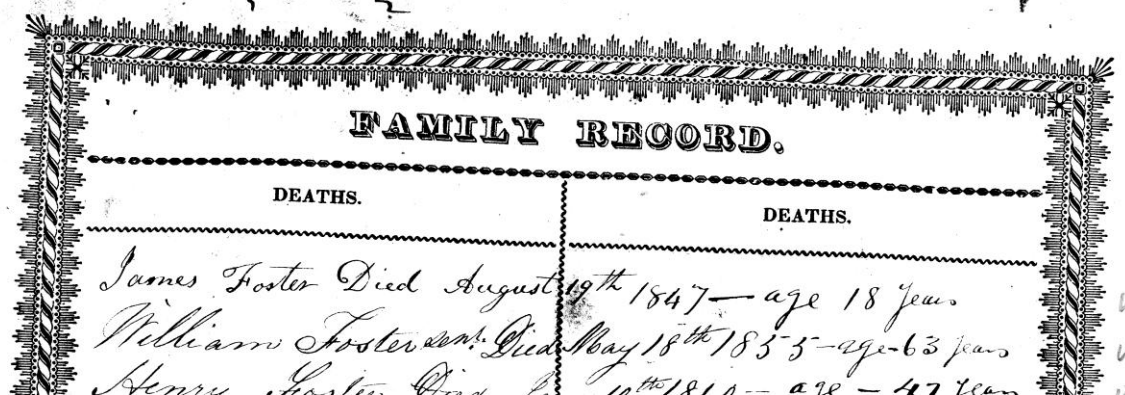 FAMILY RECORD.
DEATHS.
DEATHS.
James Foster Died August 19th 1847 — age 18 years
William Foster senr. Died May 18th 1855 - age - 63 years
Henry Foster Died — age - 47 years